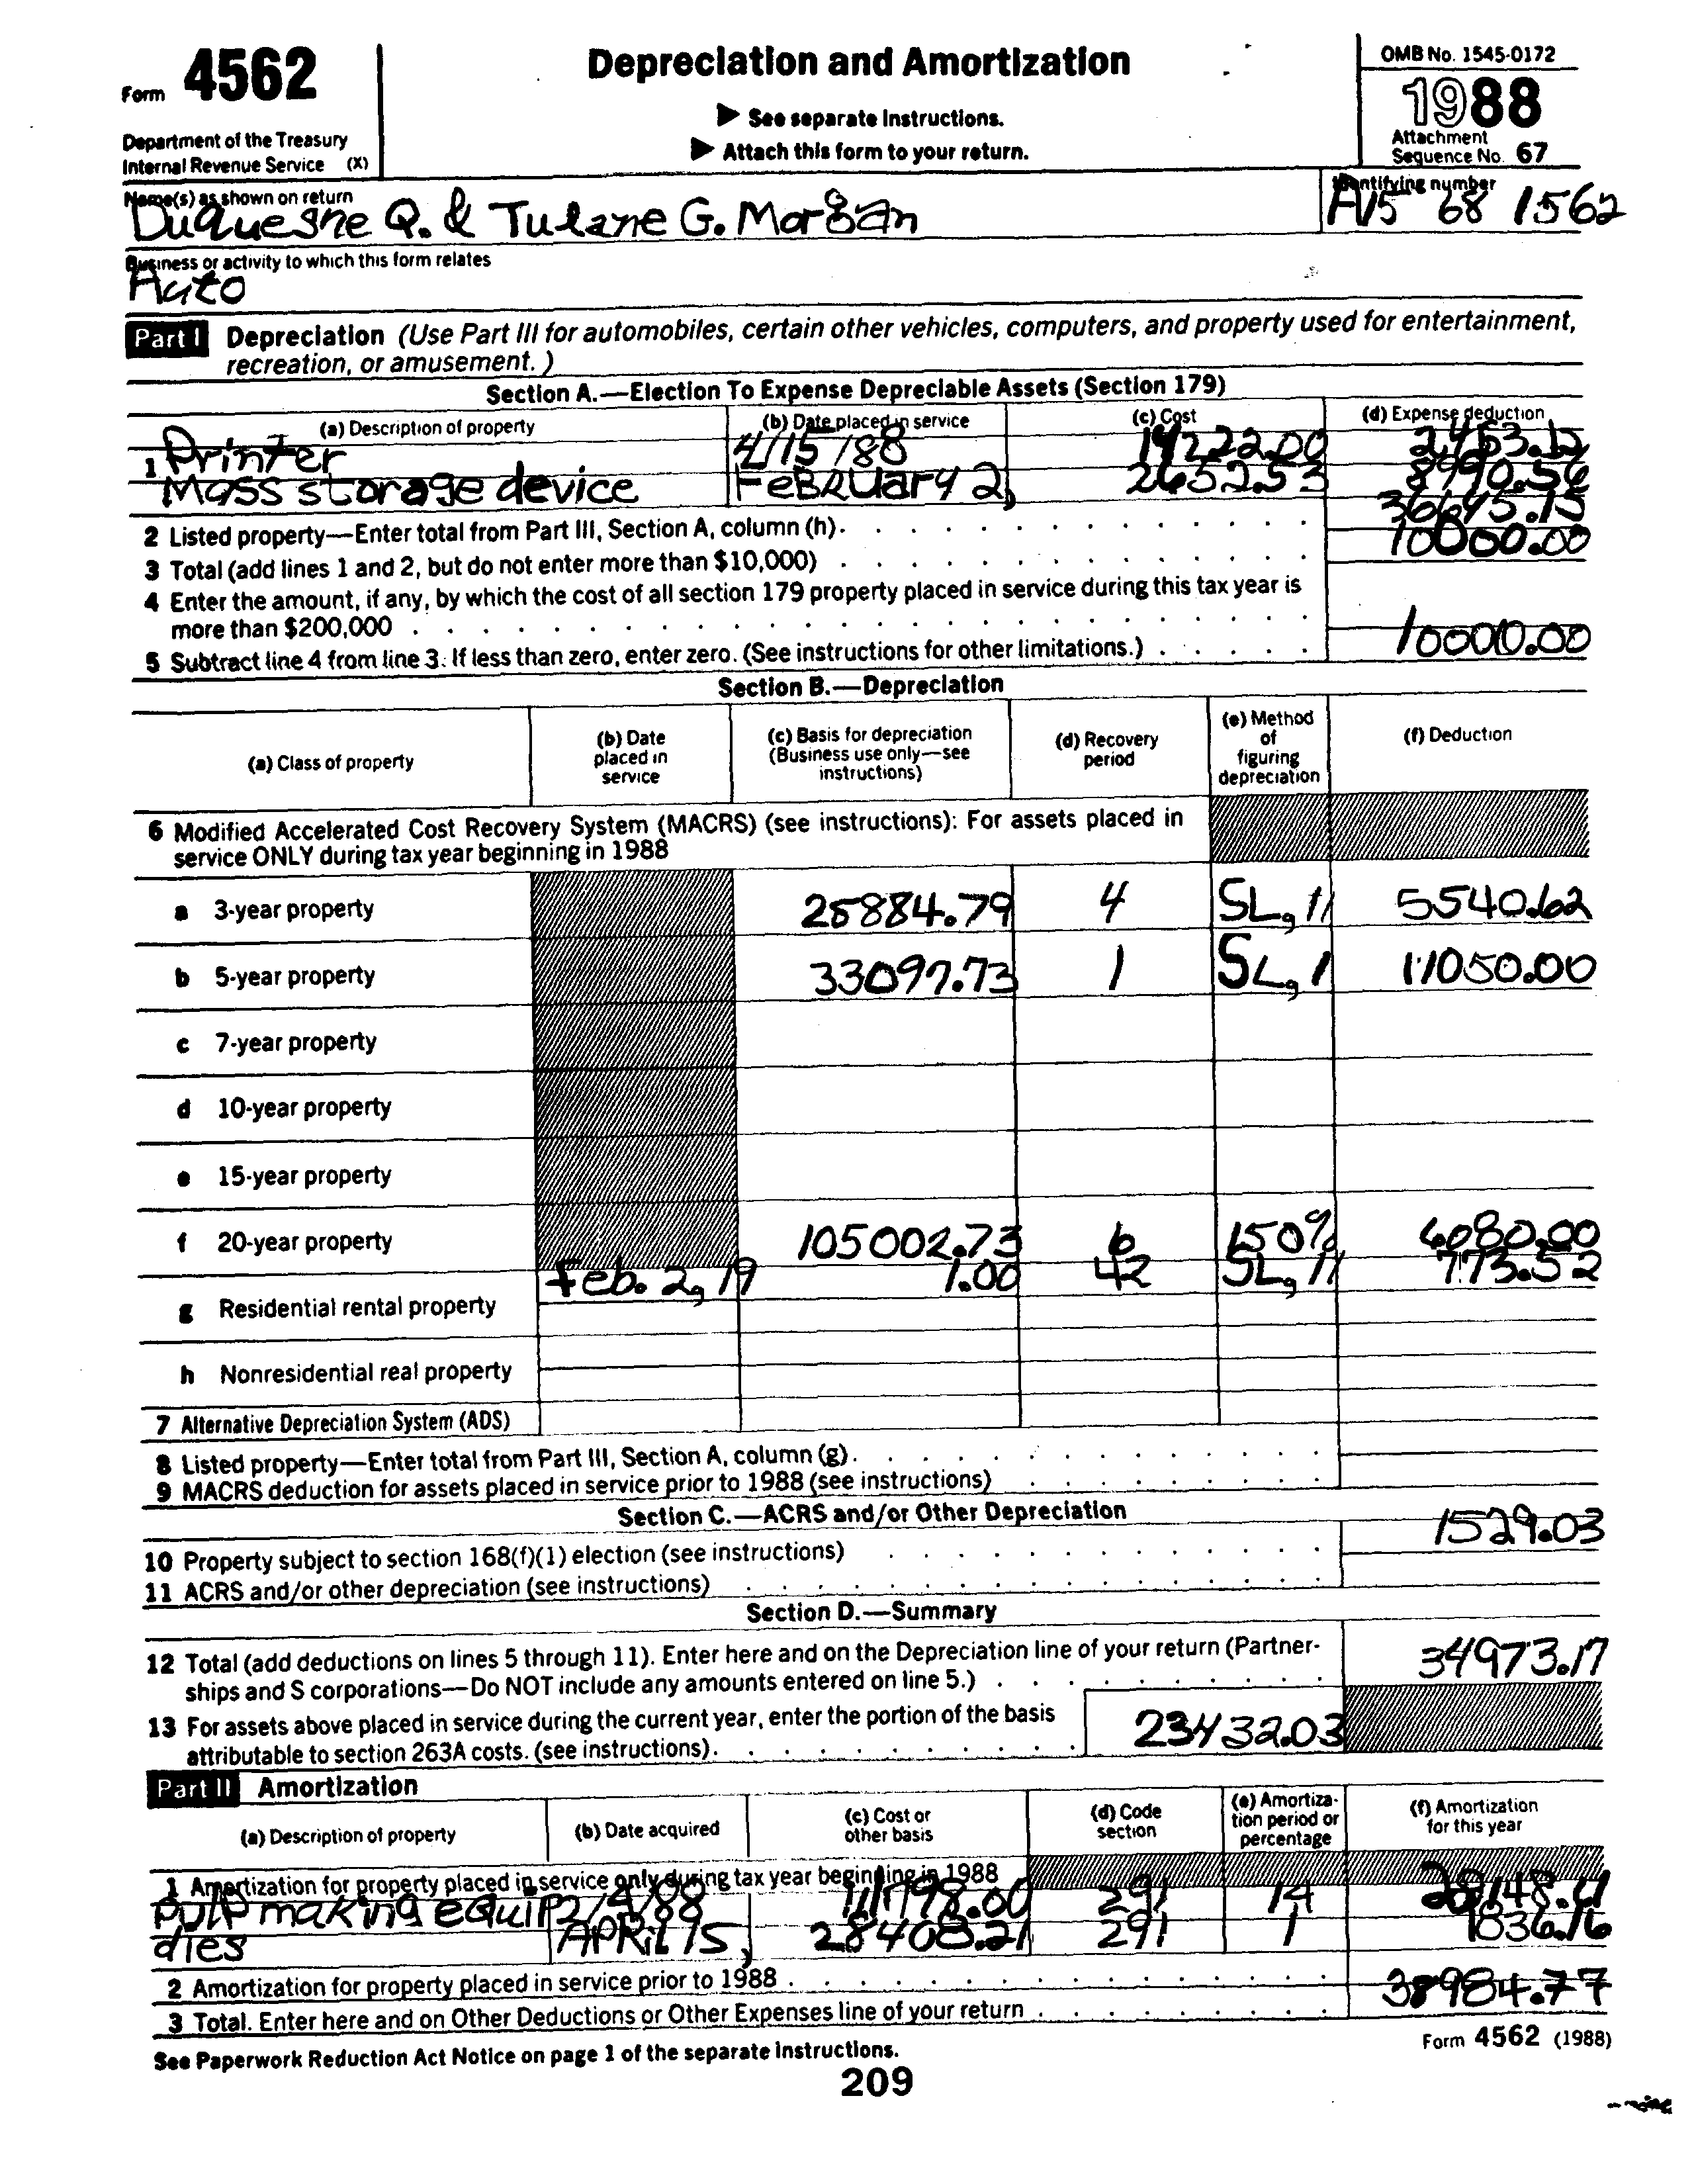 Form 4562
Department of the Treasury
Internal Revenue Service (X)
Depreciation and Amortization
▶ See separate Instructions.
▶ Attach this form to your return.
OMB No. 1545-0172
1988
Attachment
Sequence No. 67
Name(s) as shown on return
Duquesne Q. & Tulane G. Morgan
Identifying number
A15 68 1562
Business or activity to which this form relates
Auto
Part I Depreciation (Use Part III for automobiles, certain other vehicles, computers, and property used for entertainment,
recreation, or amusement.)
Section A.—Election To Expense Depreciable Assets (Section 179)
(a) Description of property (b) Date placed in service (c) Cost (d) Expense deduction
1 Printer 4/15/88 14222.00
Mass storage device FeBRUary 2, 2652.53 8990.56
2 Listed property—Enter total from Part III, Section A, column (h). 36645.15
3 Total (add lines 1 and 2, but do not enter more than $10,000) 10000.00
4 Enter the amount, if any, by which the cost of all section 179 property placed in service during this tax year is
more than $200,000
5 Subtract line 4 from line 3. If less than zero, enter zero. (See instructions for other limitations.) 10000.00
Section B.—Depreciation
(a) Class of property (b) Date placed in service (c) Basis for depreciation (Business use only—see instructions) (d) Recovery period (e) Method of figuring depreciation (f) Deduction
6 Modified Accelerated Cost Recovery System (MACRS) (see instructions): For assets placed in
service ONLY during tax year beginning in 1988
a 3-year property 25884.79 4 SL, 11 5540.62
b 5-year property 33097.73 1 SL, 1 11050.00
c 7-year property
d 10-year property
e 15-year property
f 20-year property 105002.73 6 150% 6080.00
g Residential rental property Feb. 2, 19 1.00 42 SL, 11 773.52
h Nonresidential real property
7 Alternative Depreciation System (ADS)
8 Listed property—Enter total from Part III, Section A, column (g).
9 MACRS deduction for assets placed in service prior to 1988 (see instructions)
Section C.—ACRS and/or Other Depreciation
10 Property subject to section 168(f)(1) election (see instructions) 1529.03
11 ACRS and/or other depreciation (see instructions)
Section D.—Summary
12 Total (add deductions on lines 5 through 11). Enter here and on the Depreciation line of your return (Partner-
ships and S corporations—Do NOT include any amounts entered on line 5.) 34973.17
13 For assets above placed in service during the current year, enter the portion of the basis
attributable to section 263A costs. (see instructions). 23432.03
Part II Amortization
(a) Description of property (b) Date acquired (c) Cost or other basis (d) Code section (e) Amortization period or percentage (f) Amortization for this year
1 Amortization for property placed in service only during tax year beginning in 1988
Pulp making equip 2/4/88 291 14
dies APRiL 15, 28408.21 291 1 1836.16
2 Amortization for property placed in service prior to 1988 . 38984.77
3 Total. Enter here and on Other Deductions or Other Expenses line of your return
See Paperwork Reduction Act Notice on page 1 of the separate instructions.
Form 4562 (1988)
209